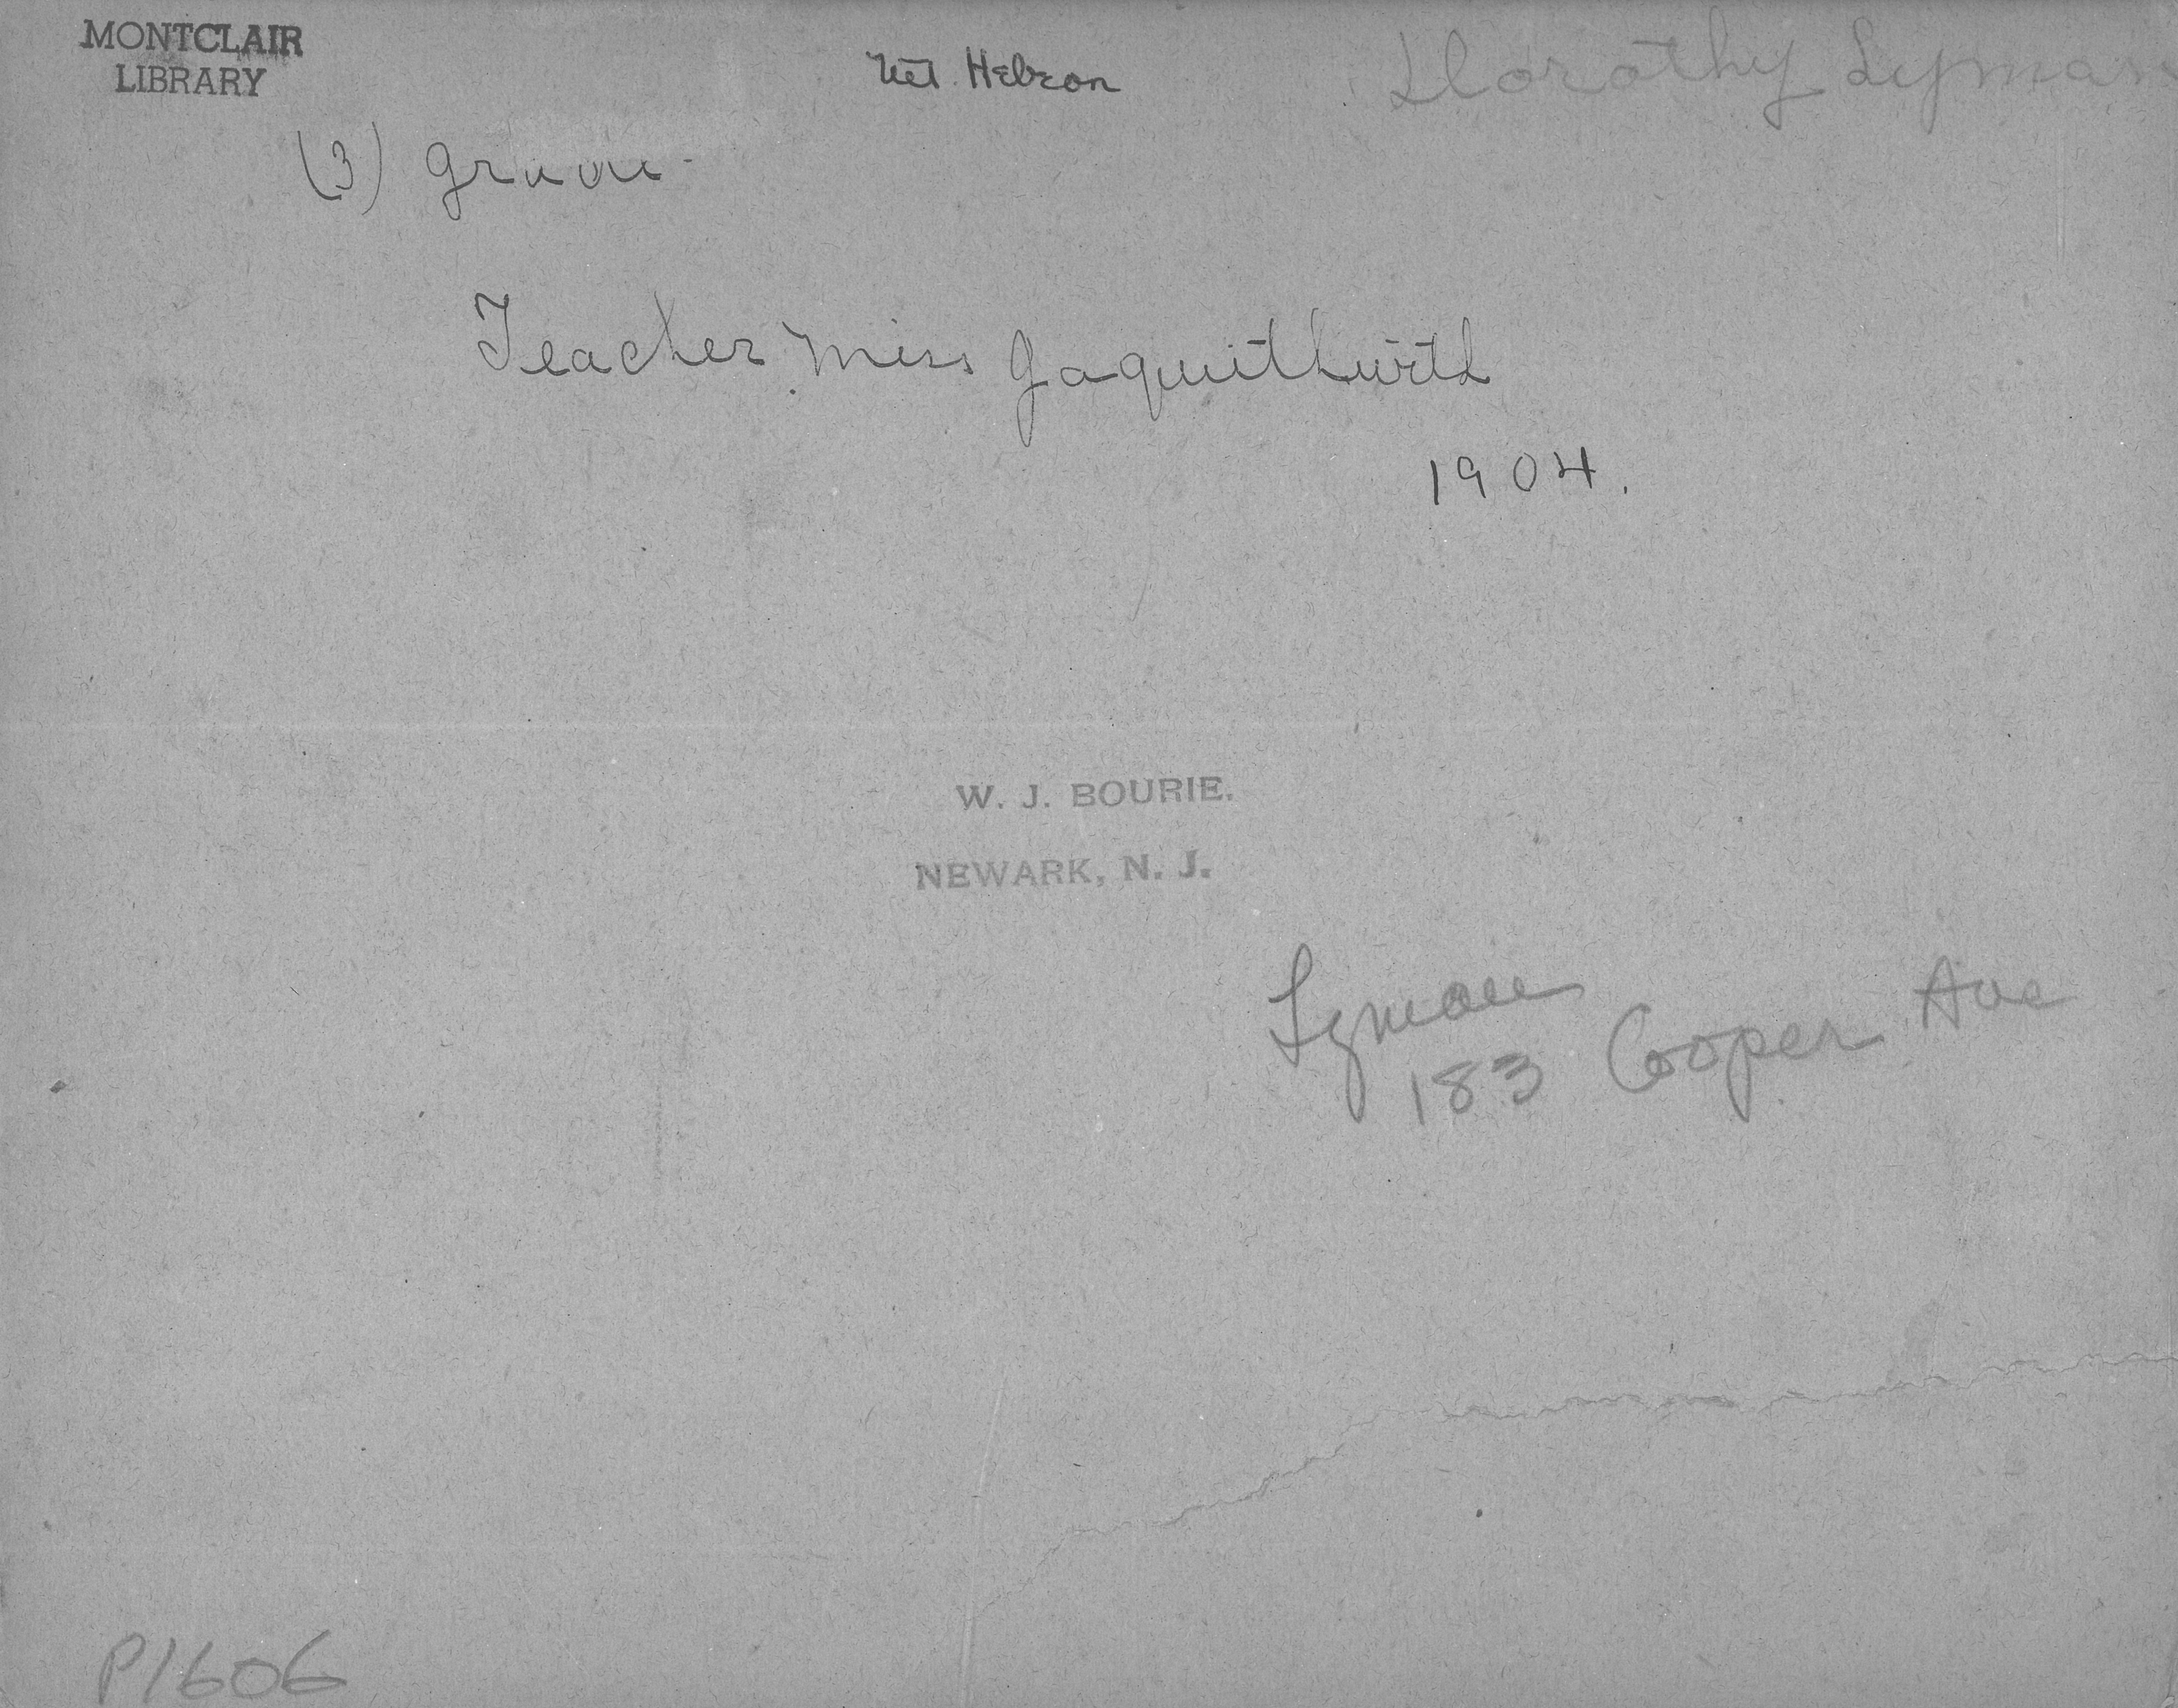 MONTCLAIR
LIBRARY
Mt. Hebron
Dorothy Lyman
(3) grade
Teacher Miss
1904.
W. J. BOURIE.
NEWARK, N. J.
Lyman
183 Cooper Ave
P1606